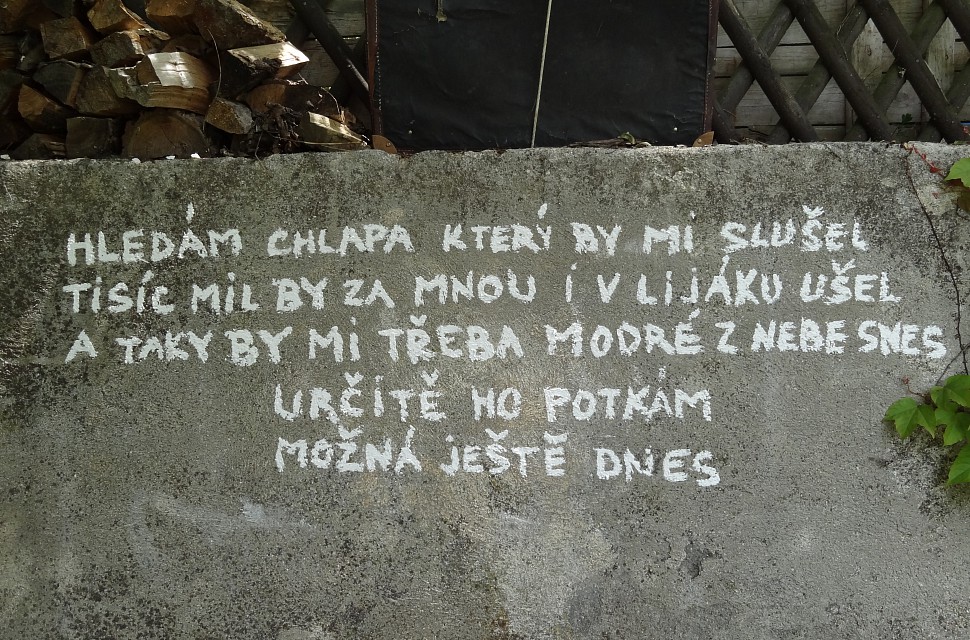 HLEDÁM CHLAPA KTERÝ BY MI SLUŠEL
TISÍC MIL BY ZA MNOU I V LIJÁKU UŠEL
A TAKY BY MI TŘEBA MODRÉ Z NEBE SNES
URČITĚ HO POTKÁM
MOŽNÁ JEŠTĚ DNES